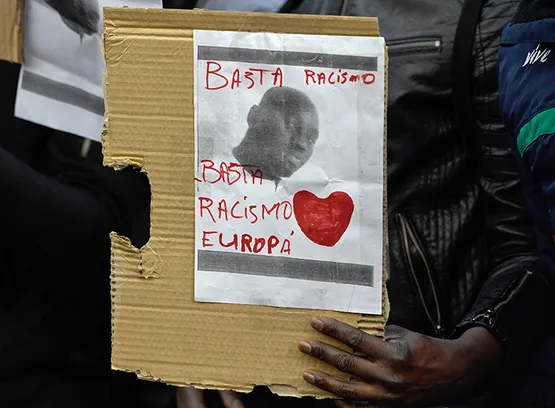 BASTA RACISMO
BASTA
RACISMO
EUROPÁ
vive